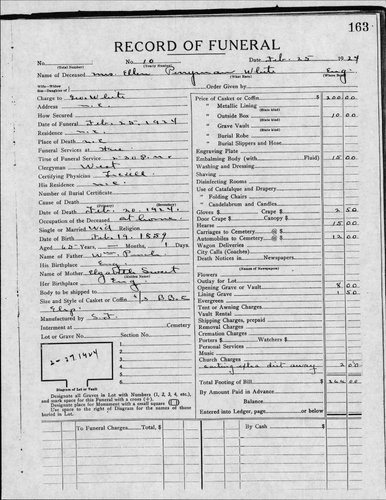 163
RECORD OF FUNERAL
No. No. 10 Date Feb. 25 1924
(Total Number) (Yearly Number)
Name of Deceased Mrs. Ellen Perryman White Eng.
(What Race) (Where Born)
Wife—Widow
Son—Daughter of Order Given by
Charge to Geo White
Address N.E.
How Secured
Date of Funeral Feb. 25, 1924
Residence N.E.
Place of Death N.E.
Funeral Services at
Time of Funeral Service
Clergyman West
Certifying Physician
His Residence N.E.
Number of Burial Certificate
Cause of Death
(Primary) (Secondary)
Date of Death Feb. 1924
Occupation of the Deceased at home
Single or Married Wid Religion
Date of Birth 1859
Aged Years Months, Days
Name of Father Wm.
His Birthplace Eng
Name of Mother Elizabeth Sweet
(Maiden Name)
Her Birthplace Eng
Body to be shipped to
Size and Style of Casket or Coffin
Manufactured by
Interment at Cemetery
Lot or Grave No. Section No.
2-27-1924
1
2
3
4
5
6
Diagram of Lot or Vault
Designate all Graves in Lot with Numbers (1, 2, 3, 4, etc.),
and mark space for this Funeral with a cross (+).
Designate place for Monument with a small square
Use space to the right of Diagram for the names of those
buried in Lot.
Price of Casket or Coffin $ 200 00
" Metallic Lining
(State kind)
" Outside Box 10 00
(State kind)
" Grave Vault
(State kind)
" Burial Robe
(State kind)
" Burial Slippers and Hose
Engraving Plate
Embalming Body (with Fluid) 15 00
Washing and Dressing
Shaving
Disinfecting Rooms
Use of Catafalque and Drapery
" Folding Chairs
" Candelabrum and Candles
Gloves $ Crape $ 2 50
Door Crape $ Canopy $
Hearse 15 00
Carriages to Cemetery @ $
Automobiles to Cemetery @ $ 12 00
Wagon Deliveries
City Calls (Coaches)
Death Notices in Newspapers
(Names of Newspapers)
Flowers
Outlay for Lot
Opening Grave or Vault 8 00
Lining Grave 1 50
Evergreens
Tent or Awning Charges
Vault Rental
Shipping Charges, prepaid
Removal Charges
Cremation Charges
Porters $ Watchers $
Personal Services
Music
Church Charges
carting dirt away 2 00
Total Footing of Bill $
By Amount Paid in Advance
Balance
Entered into Ledger, page or below
To Funeral Charges, Total $ By Cash $